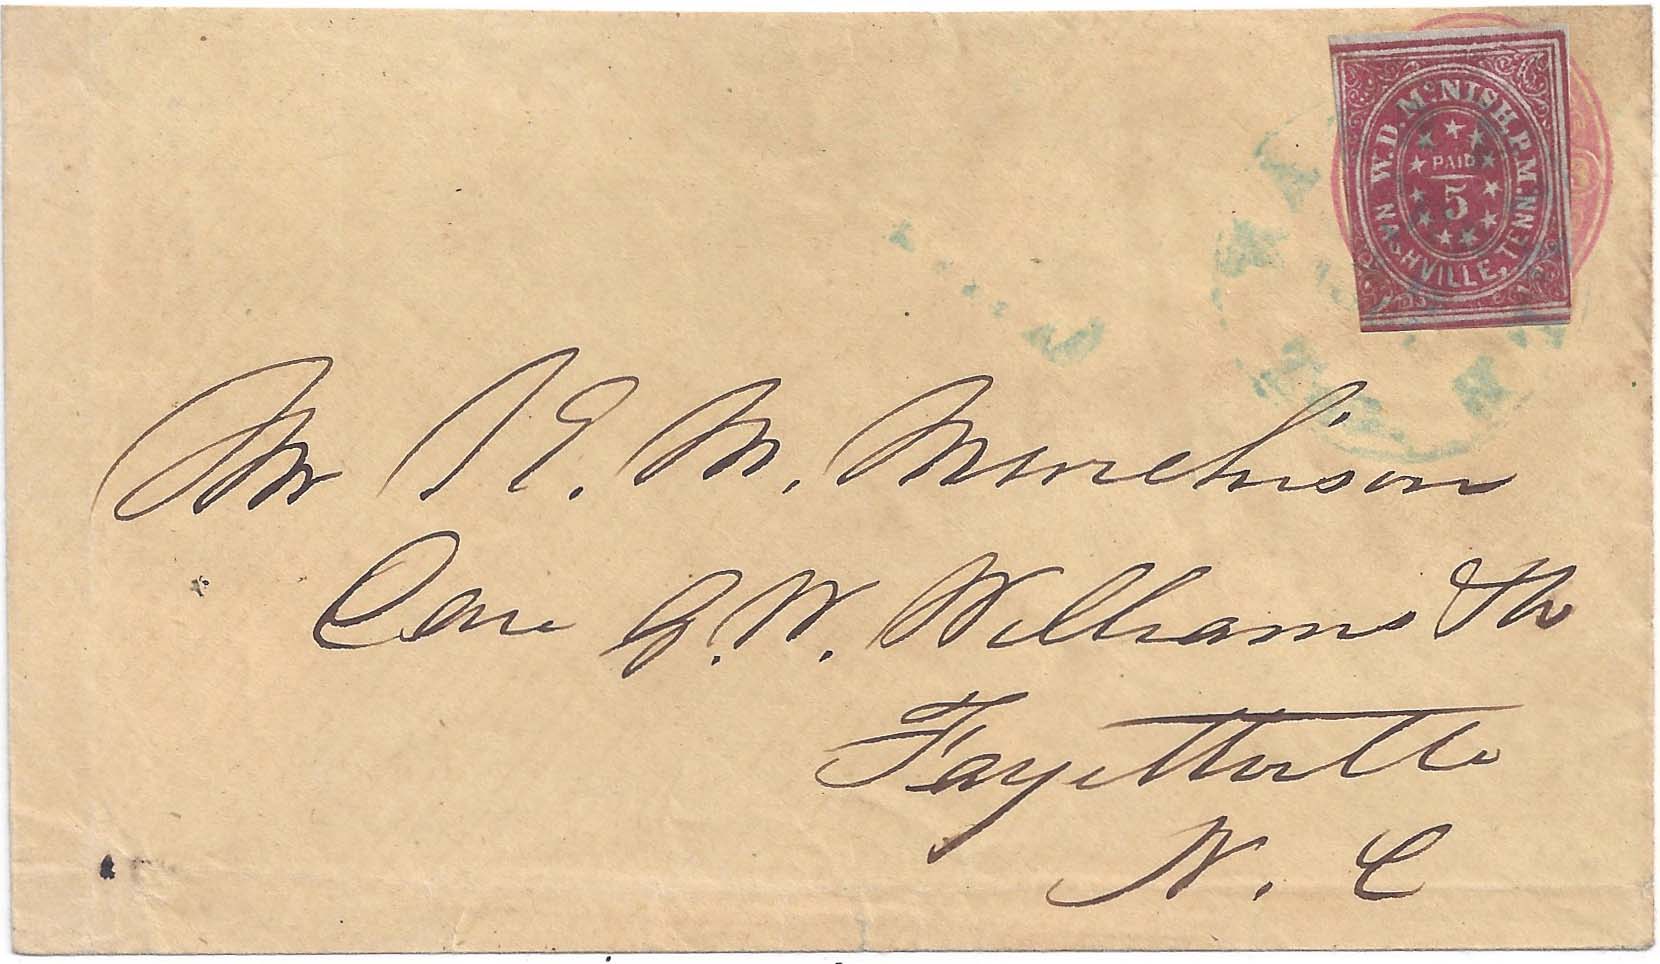 W.D. McNISH, P.M.
PAID
5
NASHVILLE, TENN.
Mr K. M. Murchison
Care J. W. Williams &
Fayetteville
N. C